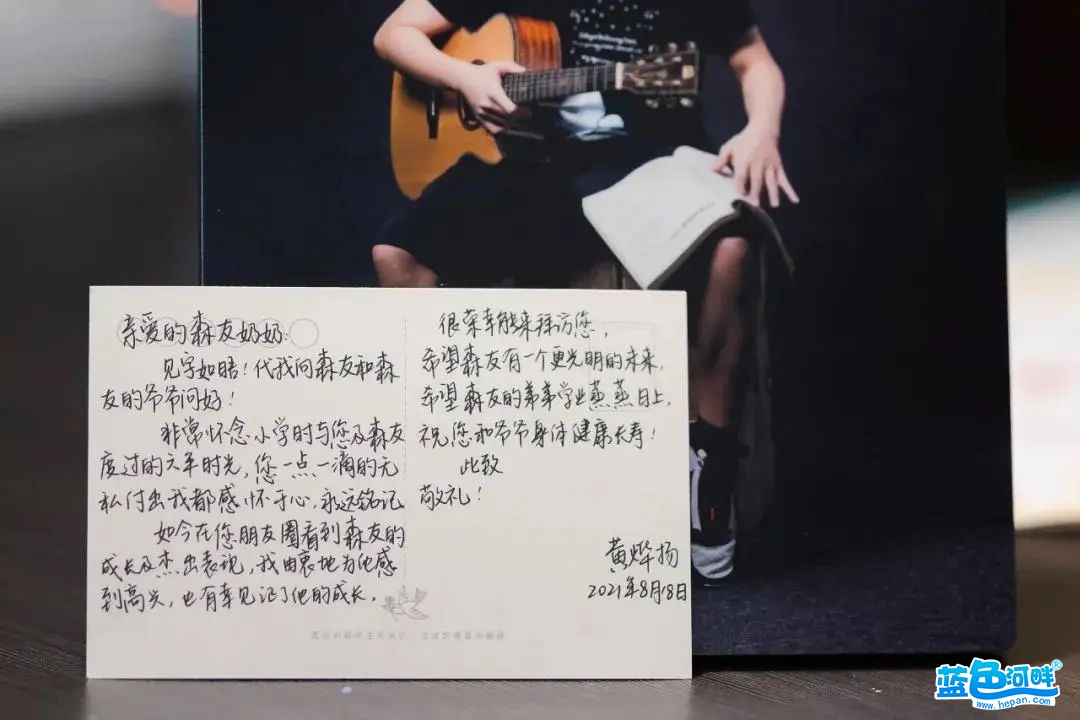 亲爱的森友奶奶:
见字如晤！代我向森友和森
友的爷爷问好！
非常怀念小学时与您及森友
度过的六年时光，您一点一滴的无
私付出我都感怀于心，永远铭记
如今在您朋友圈看到森友的
成长及杰出表现，我由衷地为他感
到高兴，也有幸见证了他的成长。
很荣幸能来拜访您，
希望森友有一个更光明的未来，
希望森友的弟弟学业蒸蒸日上，
祝您和爷爷身体健康长寿！
此致
敬礼！
黄烨扬
2021年8月18日
蓝色河畔®
www.hepan.com